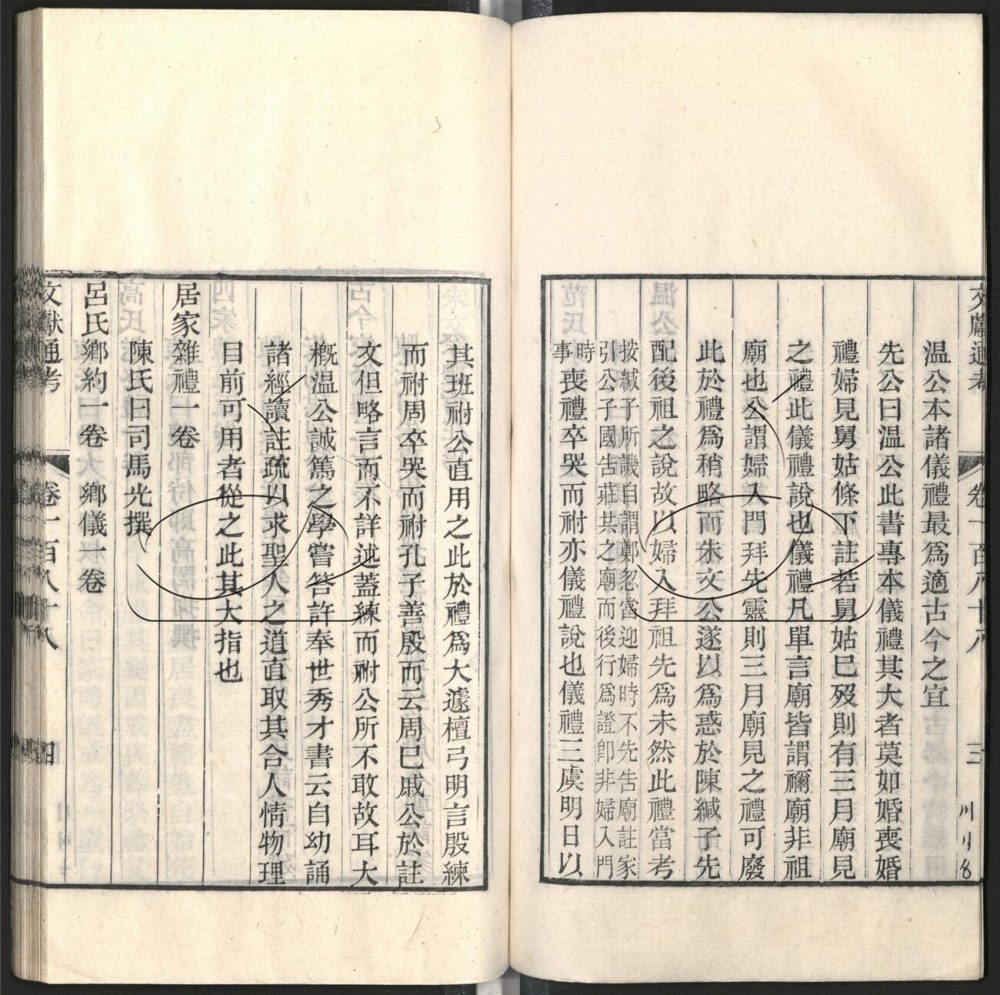 文獻通考 卷一百八十八 三
溫公本諸儀禮最爲適古今之宜
先公曰溫公此書專本儀禮其大者莫如婚喪婚
禮婦見舅姑條下註若舅姑已歿則有三月廟見
之禮此儀禮說也儀禮凡單言廟皆謂禰廟非祖
廟也公謂婦入門拜先靈則三月廟見之禮可廢
此於禮爲稍略而朱文公遂以爲惑於陳緘子先
配後祖之說故以婦入拜祖先爲未然此禮當考
按緘子所譏自謂鄭忽當迎婦時不先告廟註家
引公子圍告莊共之廟而後行爲證卽非婦入門
時
事喪禮卒哭而祔亦儀禮說也儀禮三虞明日以
其班祔公直用之此於禮爲大遽檀弓明言殷練
而祔周卒哭而祔孔子善殷而云周已戚公於註
文但略言而不詳述蓋練而祔公所不敢故耳大
槪溫公誠篤之學嘗答許奉世秀才書云自幼誦
諸經讀註疏以求聖人之道直取其合人情物理
目前可用者從之此其大指也
居家雜禮一卷
陳氏曰司馬光撰
呂氏鄉約一卷 鄉儀一卷
文獻通考 卷一百八十八 四